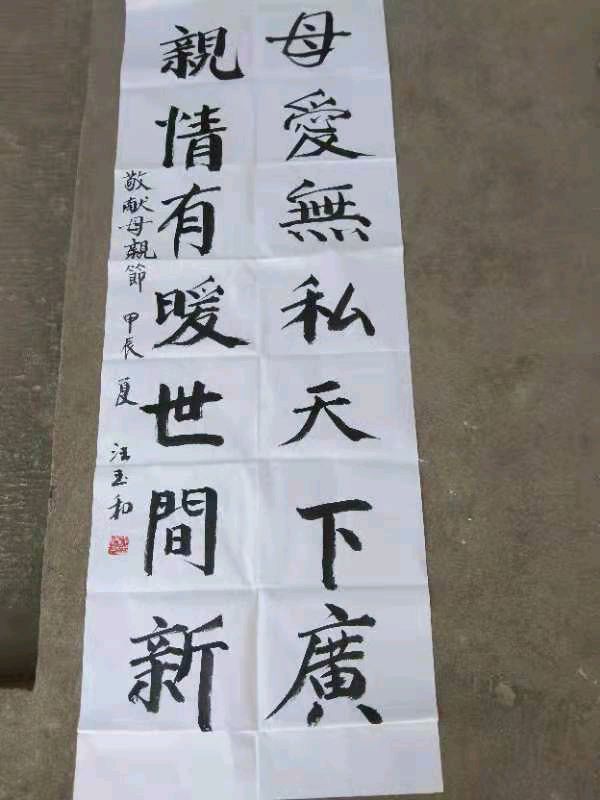 母愛無私天下廣
親情有暖世間新
敬献母親節 甲辰 夏 汪玉和